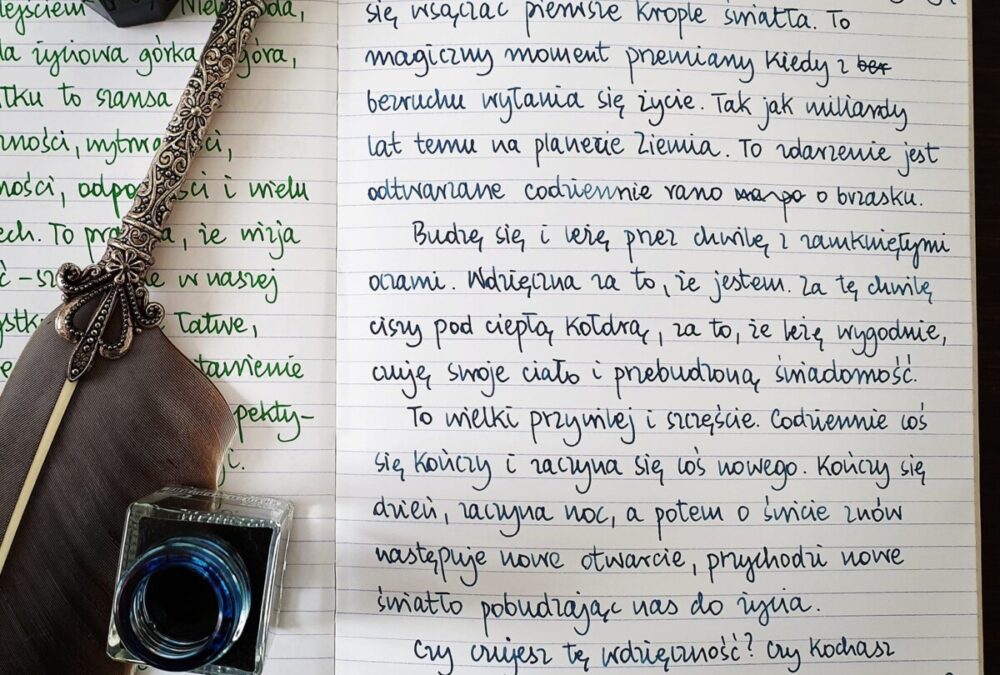 ejściem
Nie
oda,
a życiowa górka
góra,
tku to szansa
ności,
ności,
i wielu
ech. To
że wizja
w naszej
Łatwe,
tawienie
pekty-
się wsączać pierwsze krople światła. To
magiczny moment przemiany kiedy z bez
bezruchu wyłania się życie. Tak jak miliardy
lat temu na planecie Ziemia. To zdarzenie jest
odtwarzane codziennie rano o brzasku.
Budzę się i leżę przez chwilę z zamkniętymi
oczami. Wdzięczna za to, że jestem. Za tę chwilę
ciszy pod ciepłą kołdrą, za to, że leżę wygodnie,
czuję swoje ciało i przebudzoną świadomość.
To wielki przywilej i szczęście. Codziennie coś
się kończy i zaczyna się coś nowego. Kończy się
dzień, zaczyna noc, a potem o świcie znów
następuje nowe otwarcie, przychodzi nowe
światło pobudzając nas do życia.
Czy czujesz tę wdzięczność? Czy kochasz